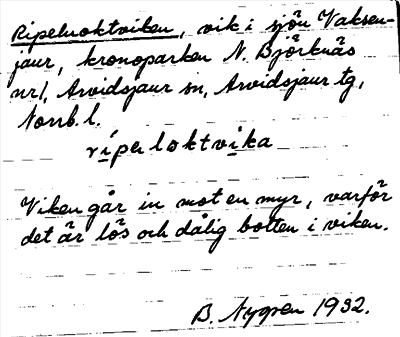 Ripeluoktviken, vik i sjön Vaksen-
jaur, kronoparken N. Björknäs
nr 1, Arvidsjaur sn, Arvidsjaur tg,
Norrb. l.
ríperloktvika
Viken går in mot en myr, varför
det är lös och dålig botten i viken.
B. Nygren 1932.